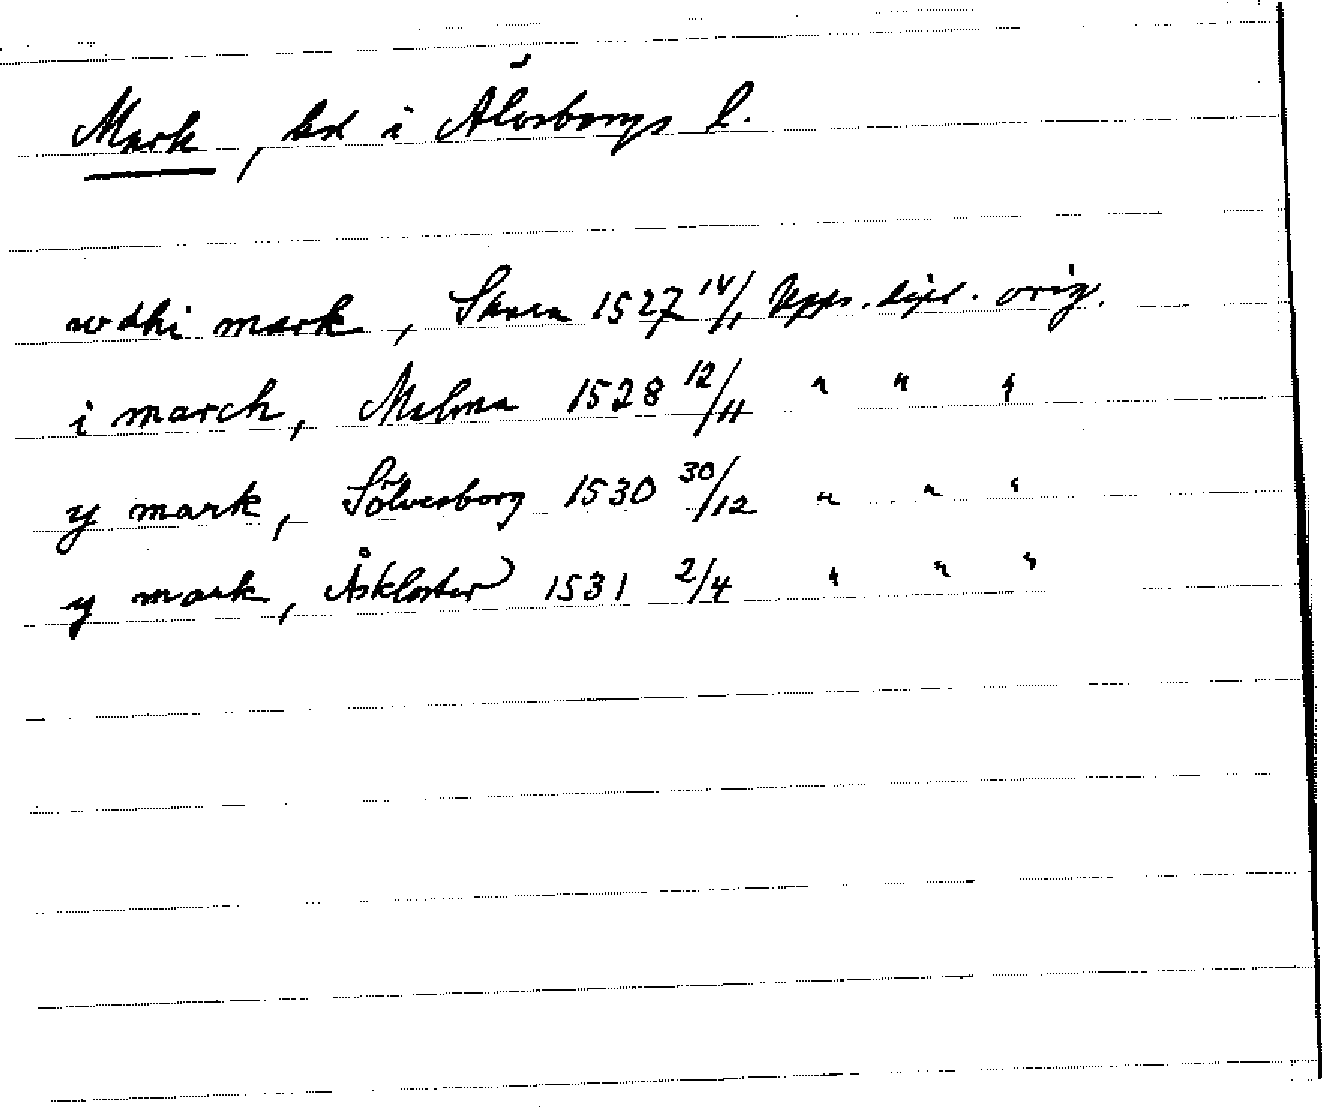 Mark, hd i Älvsborgs l.
wdhi mark, Skara 1527 14/1 Upps. dipl. orig.
i march, Malma 1528 12/11 " " "
y mark, Sölvesborg 1530 30/12 " " "
y mark, Åskloster 1531 2/4 " " "